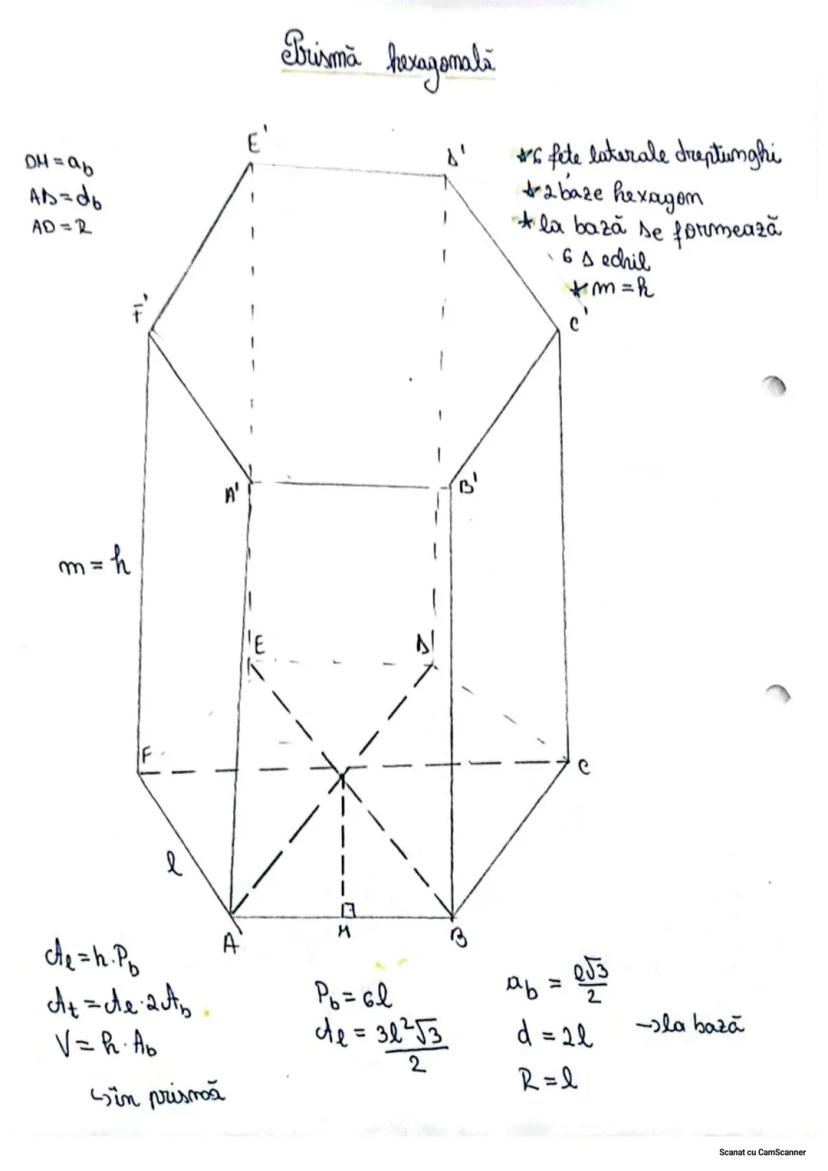 Prismă hexagonală
OM = a_b
AD = d_b
AO = R
* 6 fețe laterale dreptunghi
* 2 baze hexagon
* la bază se formează
6 Δ echil
* m = h
E'
D'
F'
C'
A'
B'
m = h
E
D
F
C
l
A
M
B
A_l = h · P_b
A_t = A_l · 2A_b
V = h · A_b
↳ în prismă
P_b = 6l
A_l = 3l²√3 / 2
a_b = l√3 / 2
d = 2l → la bază
R = l
Scanat cu CamScanner